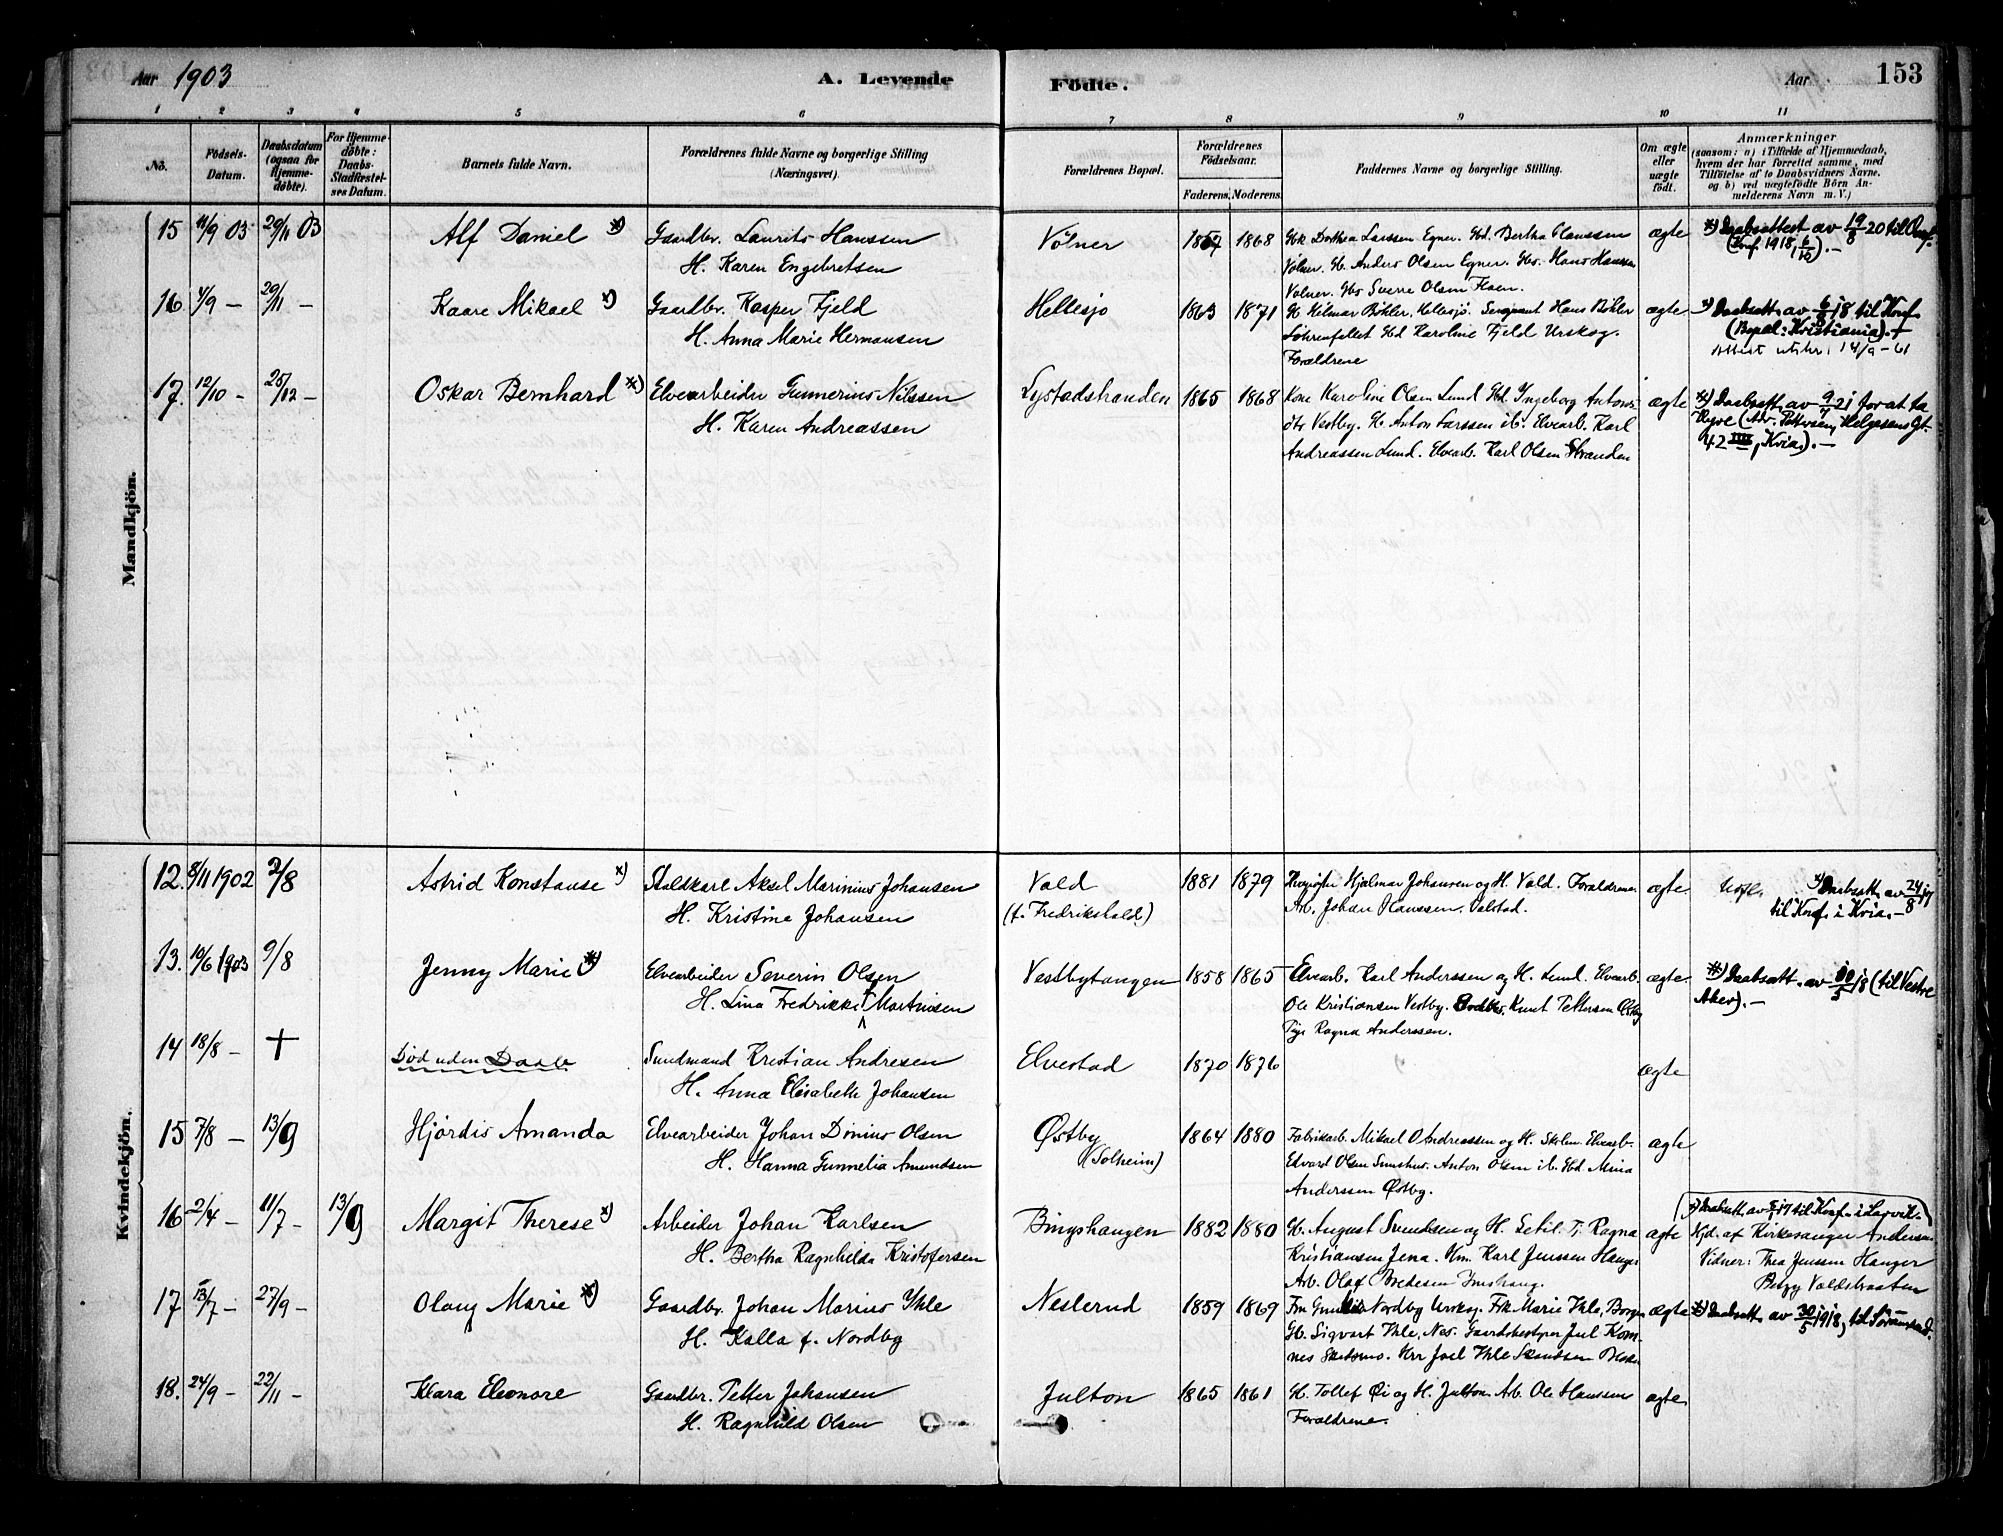 Aar 1903
A. Levende
Födte.
Aar
153
1 2 3 4 5 6 7 8 9 10 11
No.
Födsels-Datum.
Daabsdatum (ogsaa for Hjemme-döbte).
For Hjemme-döbte: Daabs-Stadfæstel-ses Datum.
Barnets fulde Navn.
Forældrenes fulde Navne og borgerlige Stilling (Næringsvei).
Forældrenes Bopæl.
Forældrenes Födselsaar.
Faderens. Moderens.
Faddernes Navne og borgerlige Stilling.
Om ægte eller uægte födt.
Anmærkninger
(saasom: a) i Tilfælde af Hjemmedaab,
hvem der har forrettet samme, med
Tilföielse af to Daabsvidners Navne.
og b) ved uægtefödte Börn An-
melderens Navn m. V.)
Mandkjön.
15 11/9 03 29/11 03 Alf Daniel *) Gaardbr. Laurits Hanssen
H. Karen Engebretsen
Völner 1864 1868
Gbk Dorthea Larssen Egner. Gbd. Bertha Claussen
Völner. Gb. Anders Olsen Egner. Gbs. Hans Hanssen
Völner. Gbs Sverre Olsen Floen.
ægte
*) Daabsattest av 19/8 20 til
(Konf. 1918, 6/10). —
16 4/9 — 29/11 — Kaare Mikael *) Gaardbr. Kasper Fjeld
H. Anna Marie Hermansen
Hellesjo 1863 1871
Gb Hilmar Böhler, Hellesjö. Sergeant Hans Böhler
Gbd Karoline Fjeld Urskog.
Forældrene
ægte
*) Daabsatt. av 6/8 18 til Konf.
(Bopæl: Kristiania). —
Attest utskr. 14/9-61
17. 12/10 — 25/12 — Oskar Bernhard *) Elvearbeider Gunnerius Nilssen
H. Karen Andreassen
Lystadstranden 1865 1868
Kone Karoline Olsen Lund Gbd. Ingeborg Antons-
dtr Vestby. Gb. Anton Larssen ib. Elvearb. Karl
Andreassen Lund. Elvearb. Karl Olsen Stranden
ægte
*) Daabsatt. av 9/7 21 for at ta
Hyre (Adr. Pettersen, Helgesens Gt.
42 IIII, Kria.). —
Kvindekjön.
12. 8/11 1902 2/8 Astrid Konstanse *) Staldkarl Aksel Marinius Johansen
H. Kristine Johansen
Vald
(f. Fredrikshald)
1881 1879
Hjalmar Johansen og H. Vald. Forældrene
Arb. Johan Hanssen. Valstad.
ægte.
*) Daabsatt. av 24/8 17
til Konf. i Kria. —
13. 19/6 1903 9/8 Jenny Marie *) Elvearbeider Severin Olsen
H. Lina Fredrikke Martinsen
Vestbytangen 1858 1865
Elvearb. Karl Anderssen og H. Lund. Elvearb.
Ole Kristiansen Vestby. Knut Pettersen Østby
Pige Ragna Anderssen.
ægte.
*) Daabsatt. av 18 (til Vestre
Aker). —
14 18/8 — † Död uden Daab Sundmand Kristian Andresen
H. Anna Elisabeth Johansen
Elvestad 1870 1876
ægte
15 7/8 — 13/9 Hjördis Amanda Elvearbeider Johan Dinius Olsen
H. Hanna Gunnelia Amundsen
Østby
(Solheim)
1864 1880
Fabrikarb. Mikael O Andreassen og H. Elvearb.
Edvard Olsen Sundhus. Anton Olsen ib. Gbd Mina
Anderssen Østby.
ægte
16 2/4 — 11/7 — 13/9 Margit Therese *) Arbeider Johan Karlsen
H. Bertha Ragnhilda Kristofersen
Bingshaugen 1882 1880
Gb. August Svendsen og H. Eetil. Tj. Ragna
Kristiansen Jena. Um. Karl Jenssen Hanger
Arb. Olaf Bredesen
ægte
*) Daabsatt. av 5/5 17 til Konf. i Larvik.
Hjd. af Kirkesanger Andersen
Vidner: Thea Jenssen Hanger
Valdsbraaten
17 13/7 — 27/9 — Olaug Marie *) Gaardbr. Johan Marius Ihle
H. Kalla f. Nordby
Neslerud 1859 1869
Fru Nordby Urskog. Frk. Marie Ihle, Borgen
Gb. Sigvart Ihle, Nes. Gaardsbestyrer Jul Kom-
nes Skedsmo.
ægte
*) Daabsatt. av 30/5 1918, til
18. 24/9 — 22/11 — Klara Eleonore Gaardbr. Petter Johansen
H. Ragnhild Olsen
Julton 1865 1861
Gb. Tollef Øi og H. Julton. Arb. Ole Hanssen
Forældrene.
ægte.